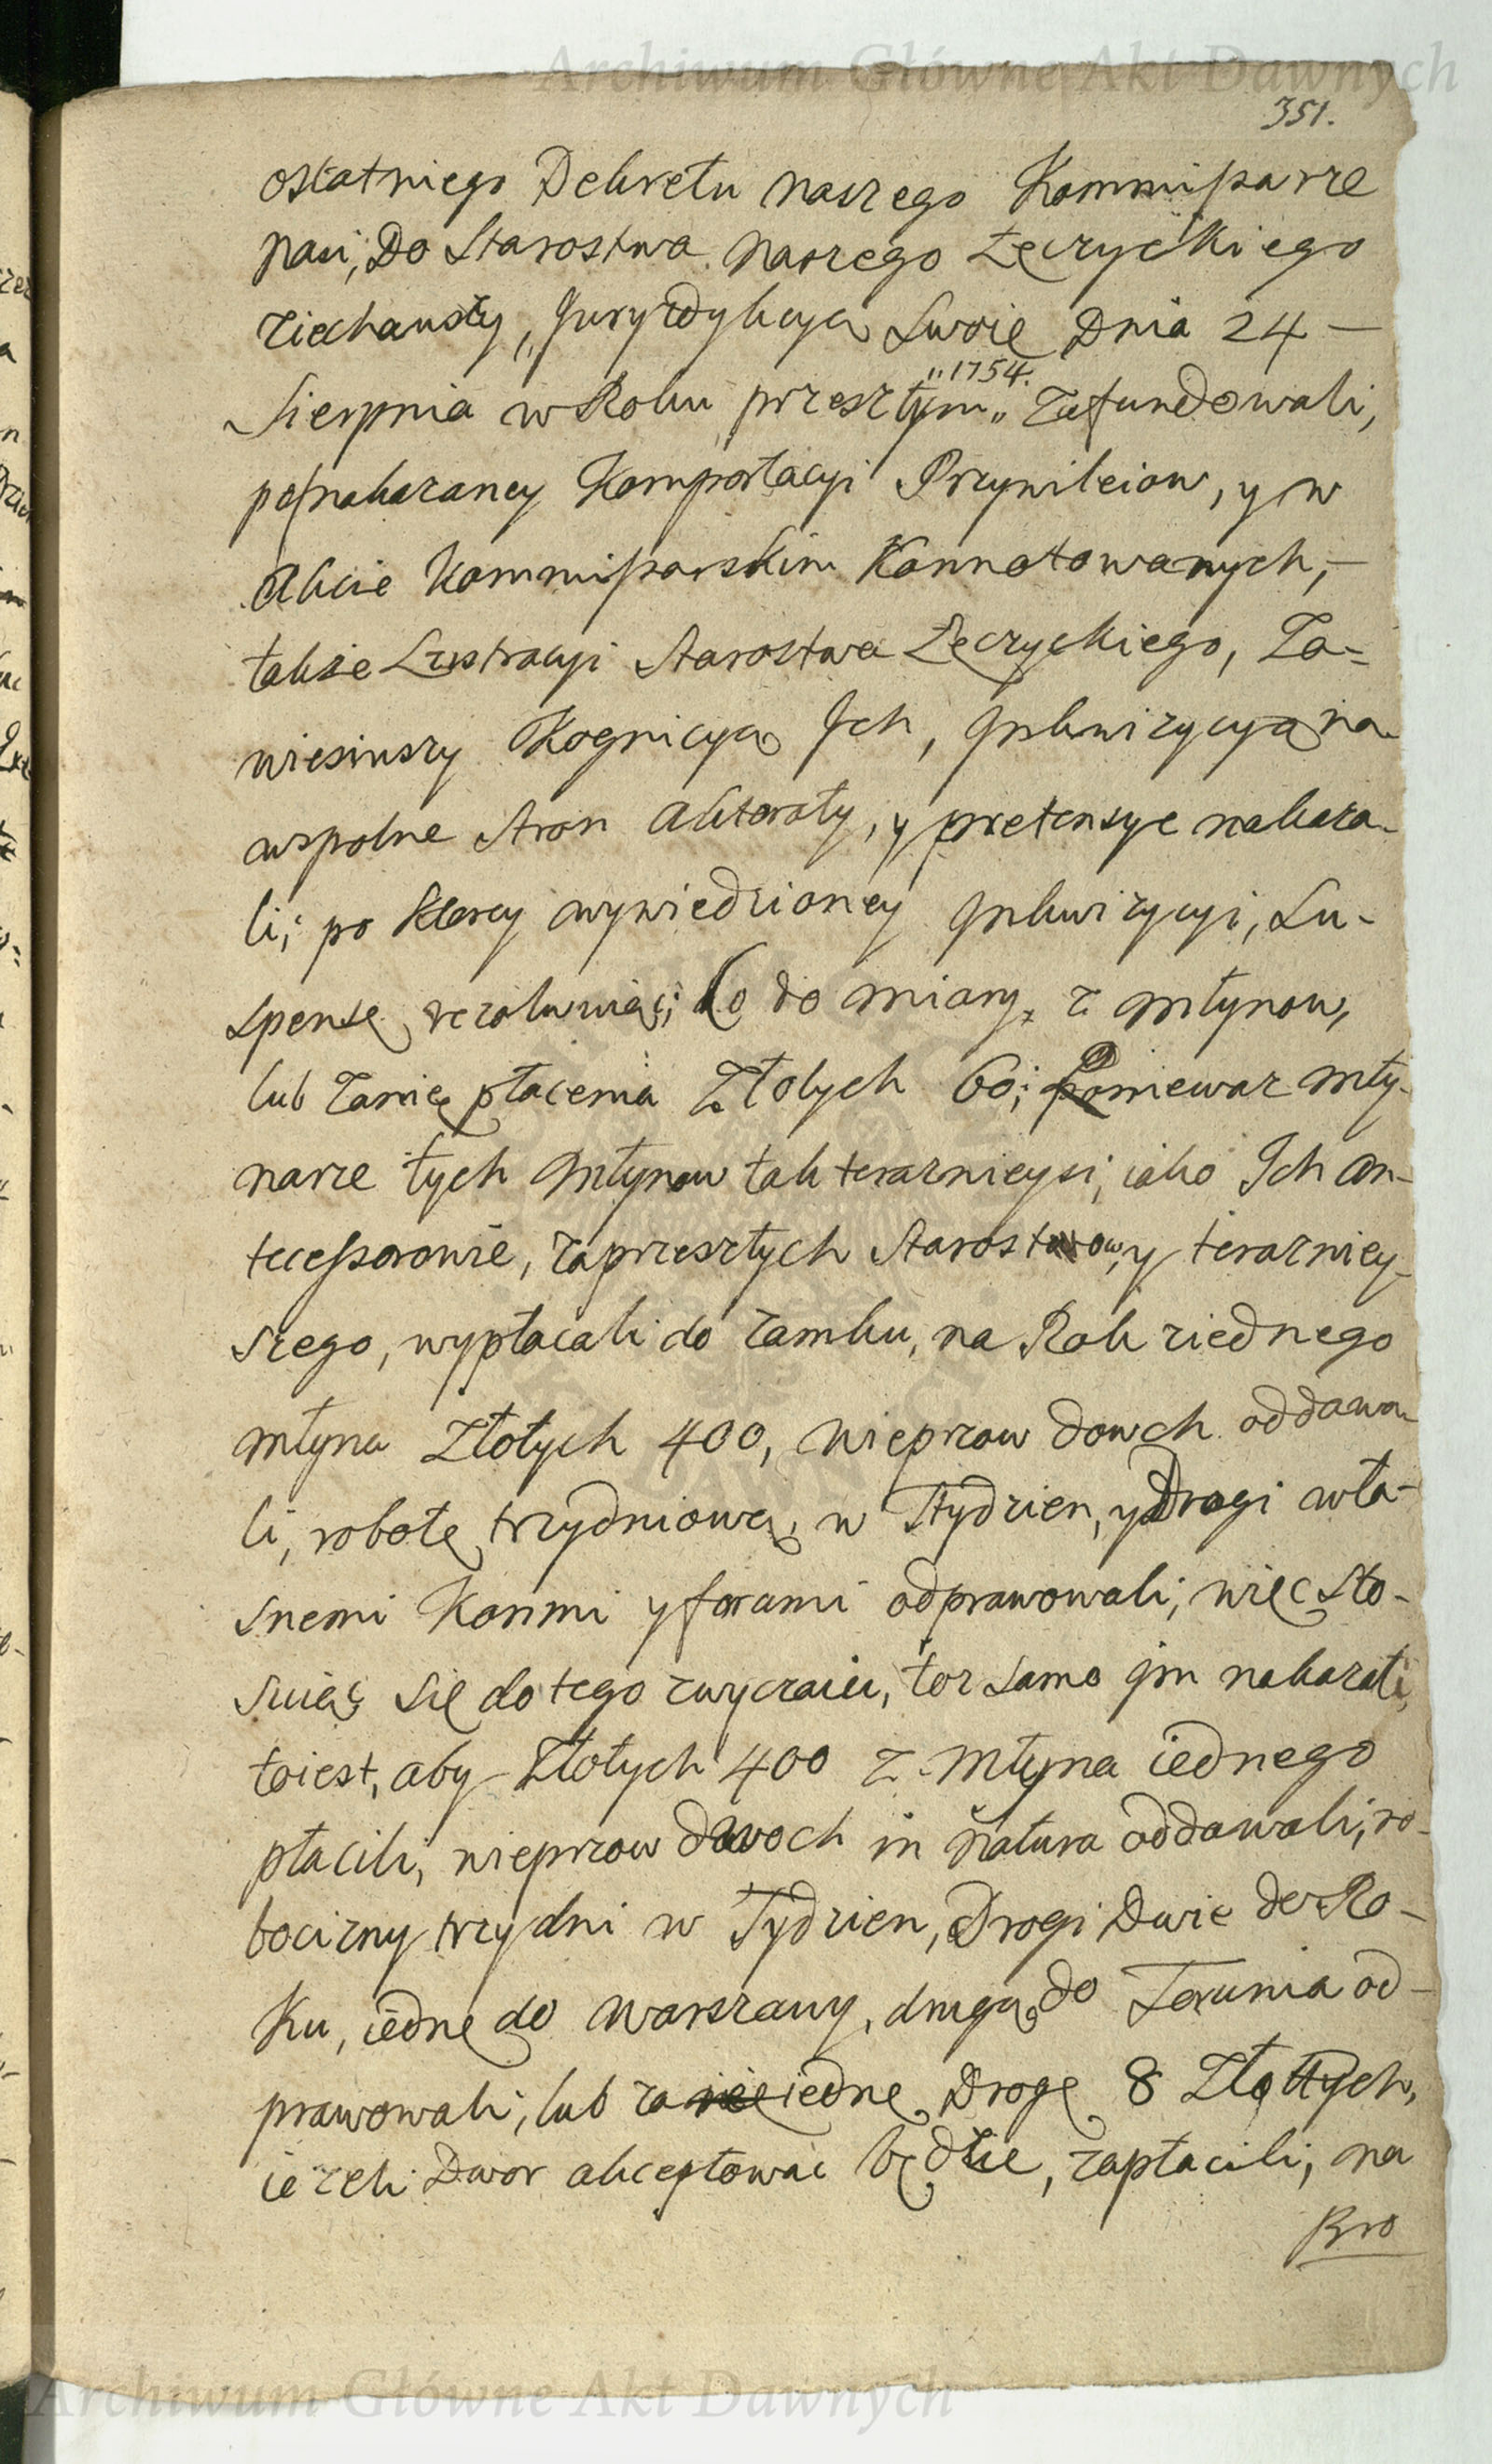 Archiwum Główne Akt Dawnych
351.
ostatniego Dekretu naszego Kommissarze
nasi, Do Starostwa naszego Łęczyckiego
ziechawszy, Juryzdykcyą Swoię Dnia 24 —
Sierpnia w Roku przeszłym „1754.„ zafundowali,
po nakazaney Komportacyi Przywileiow, y w
Akcie Kommissarskim Konnotowanych, —
także Lustracyi Starostwa Łęczyckiego, Za-
wiesiwszy Kognicyą Ich, Inkwizycyą na
wspolne Stron Aktoraty, y pretensye nakaza-
li; po ktorey wywiedzioney Inkwizycyi, Su-
spensę rezolwuiąc; Co do miary z młynow,
lub za nię płacenia Złotych 60; Poniewaz mły-
narze tych młynow tak terazneysi, iako Ich An-
tecessorowie, za przeszłych Starostow, y terazniey-
szego, wypłacali do zamku, na Rok z iednego
młyna Złotych 400, wieprzow dwoch oddawa-
li, robotę trzydniową, w Tydzien, y Drogi wła-
snemi Konmi y forami odprawowali, więc sto-
suiąc się do tego zwyczaiu, toz samo im nakazali,
toiest, aby Złotych 400 z młyna iednego
płacili, wieprzow dwoch in natura oddawali, ro-
bocizny trzy dni w Tydzien, Drogi Dwie do Ro-
ku, iednę do Warszawy, drugą do Torunia od-
prawowali, lub za iednę Drogę 8 Złotych,
iezeli Dwor akceptowac będzie, zapłacili, na
Bro
Archiwum Główne Akt Dawnych